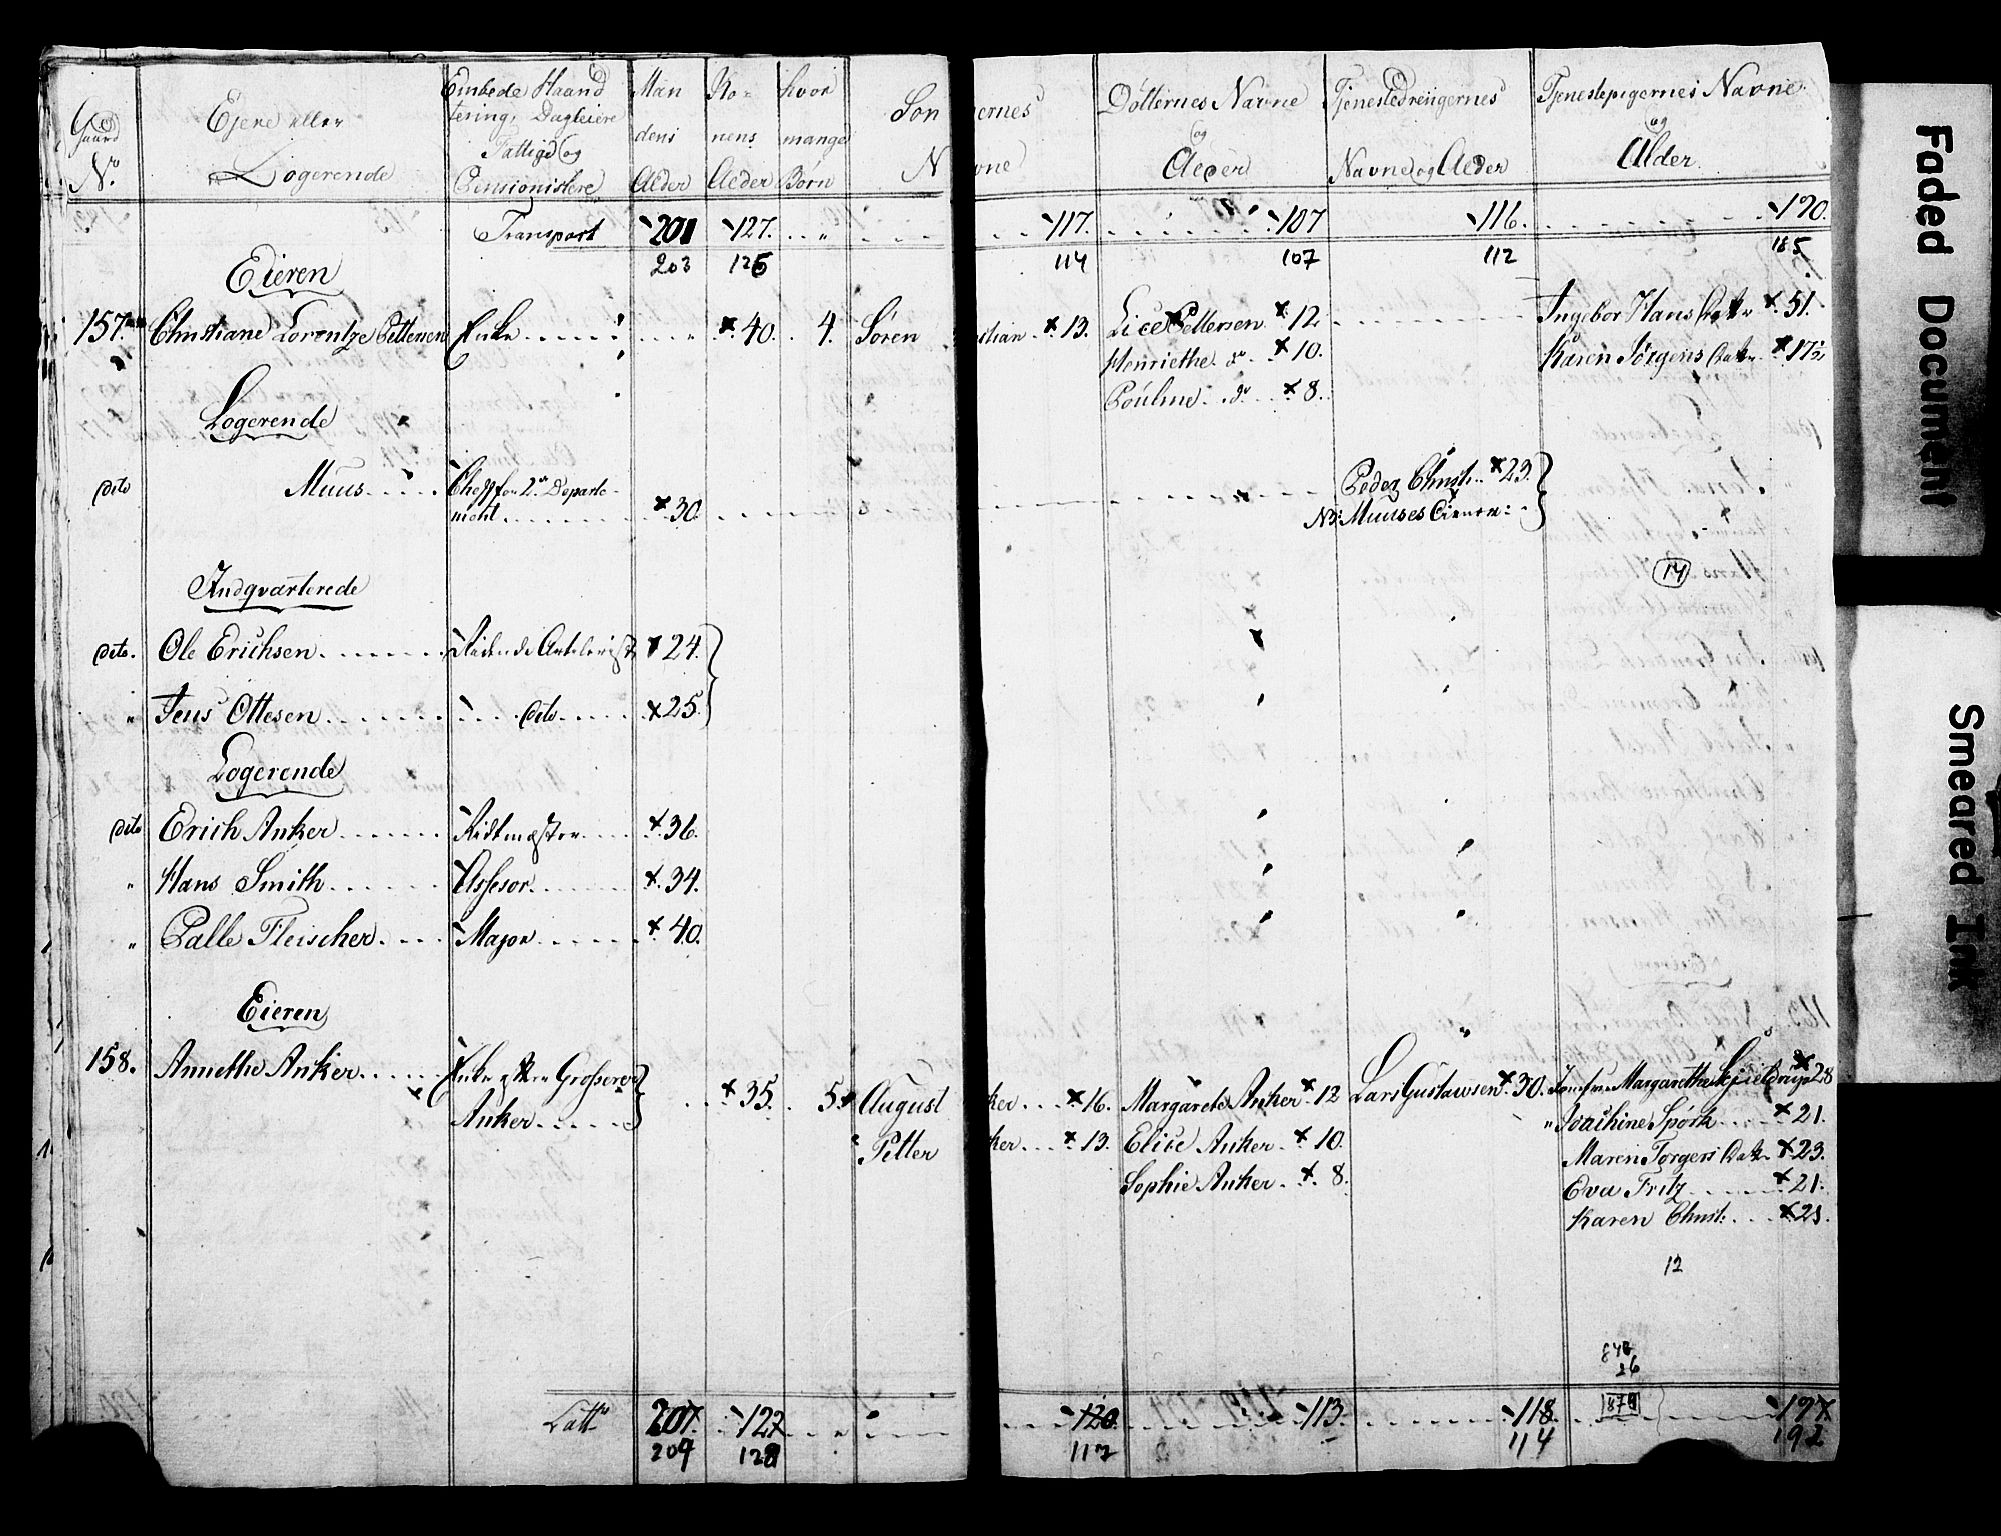 Gaard N.º | Ejere eller Logerende | Embede Haand tering, Dagleiere Fattige og Pensionistere | Man dens Alder | Ko= nens Alder | hvor mange Børn | Søn N | ernes vne | Døtternes Navne og Alder | Tjenestedrengernes Navne og Alder | Tjenestepigernes Navne og Alder
Transport 201 127. 117. 107 116. 190.
203 126 114 107 112 185
Eieren
157. Christiane Lorentze Pettersen Enke 40. 4. Søren stian 13. Lice Pettersen 12 Ingebor Hans Dattr 51.
Henriethe do 10. Karen Jørgens Dattr 17½
Pouline do 8.
Logerende
dito Muus Chef for 2den Departe= Peder Christ: 23.
ment 30. NB: Muuses Tienere:
14
Indqvarterede
dito. Ole Erichsen Ridende Artelerist 24.
" Jens Ottesen dito 25.
Logerende
dito Erich Anker Ridtmæster 36.
" Hans Smith Assesor 34.
" Palle Fleischer Major 40.
Eieren
158. Annethe Anker Enke efter Grosserer 35. 5 August ker 16. Margarete Anker 12 Lars Gustawsen 30. Jomfrue Margarethe 28
Anker Joachine Spørck 21.
Petter ker 13. Elice Anker 10. Maren Torgers Dattr 23.
Sophie Anker 8. Eva Fritz 21.
Karen Christ: 23.
12
848
26
874
Latt 207. 127 120 113. 118 197.
209 128 117 114 192
Faded Document
Smeared Ink